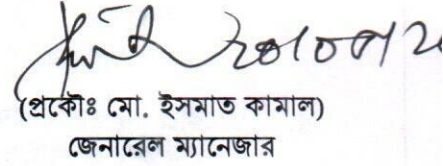 (প্রকৌঃ মো. ইসমাত কামাল)
জেনারেল ম্যানেজার